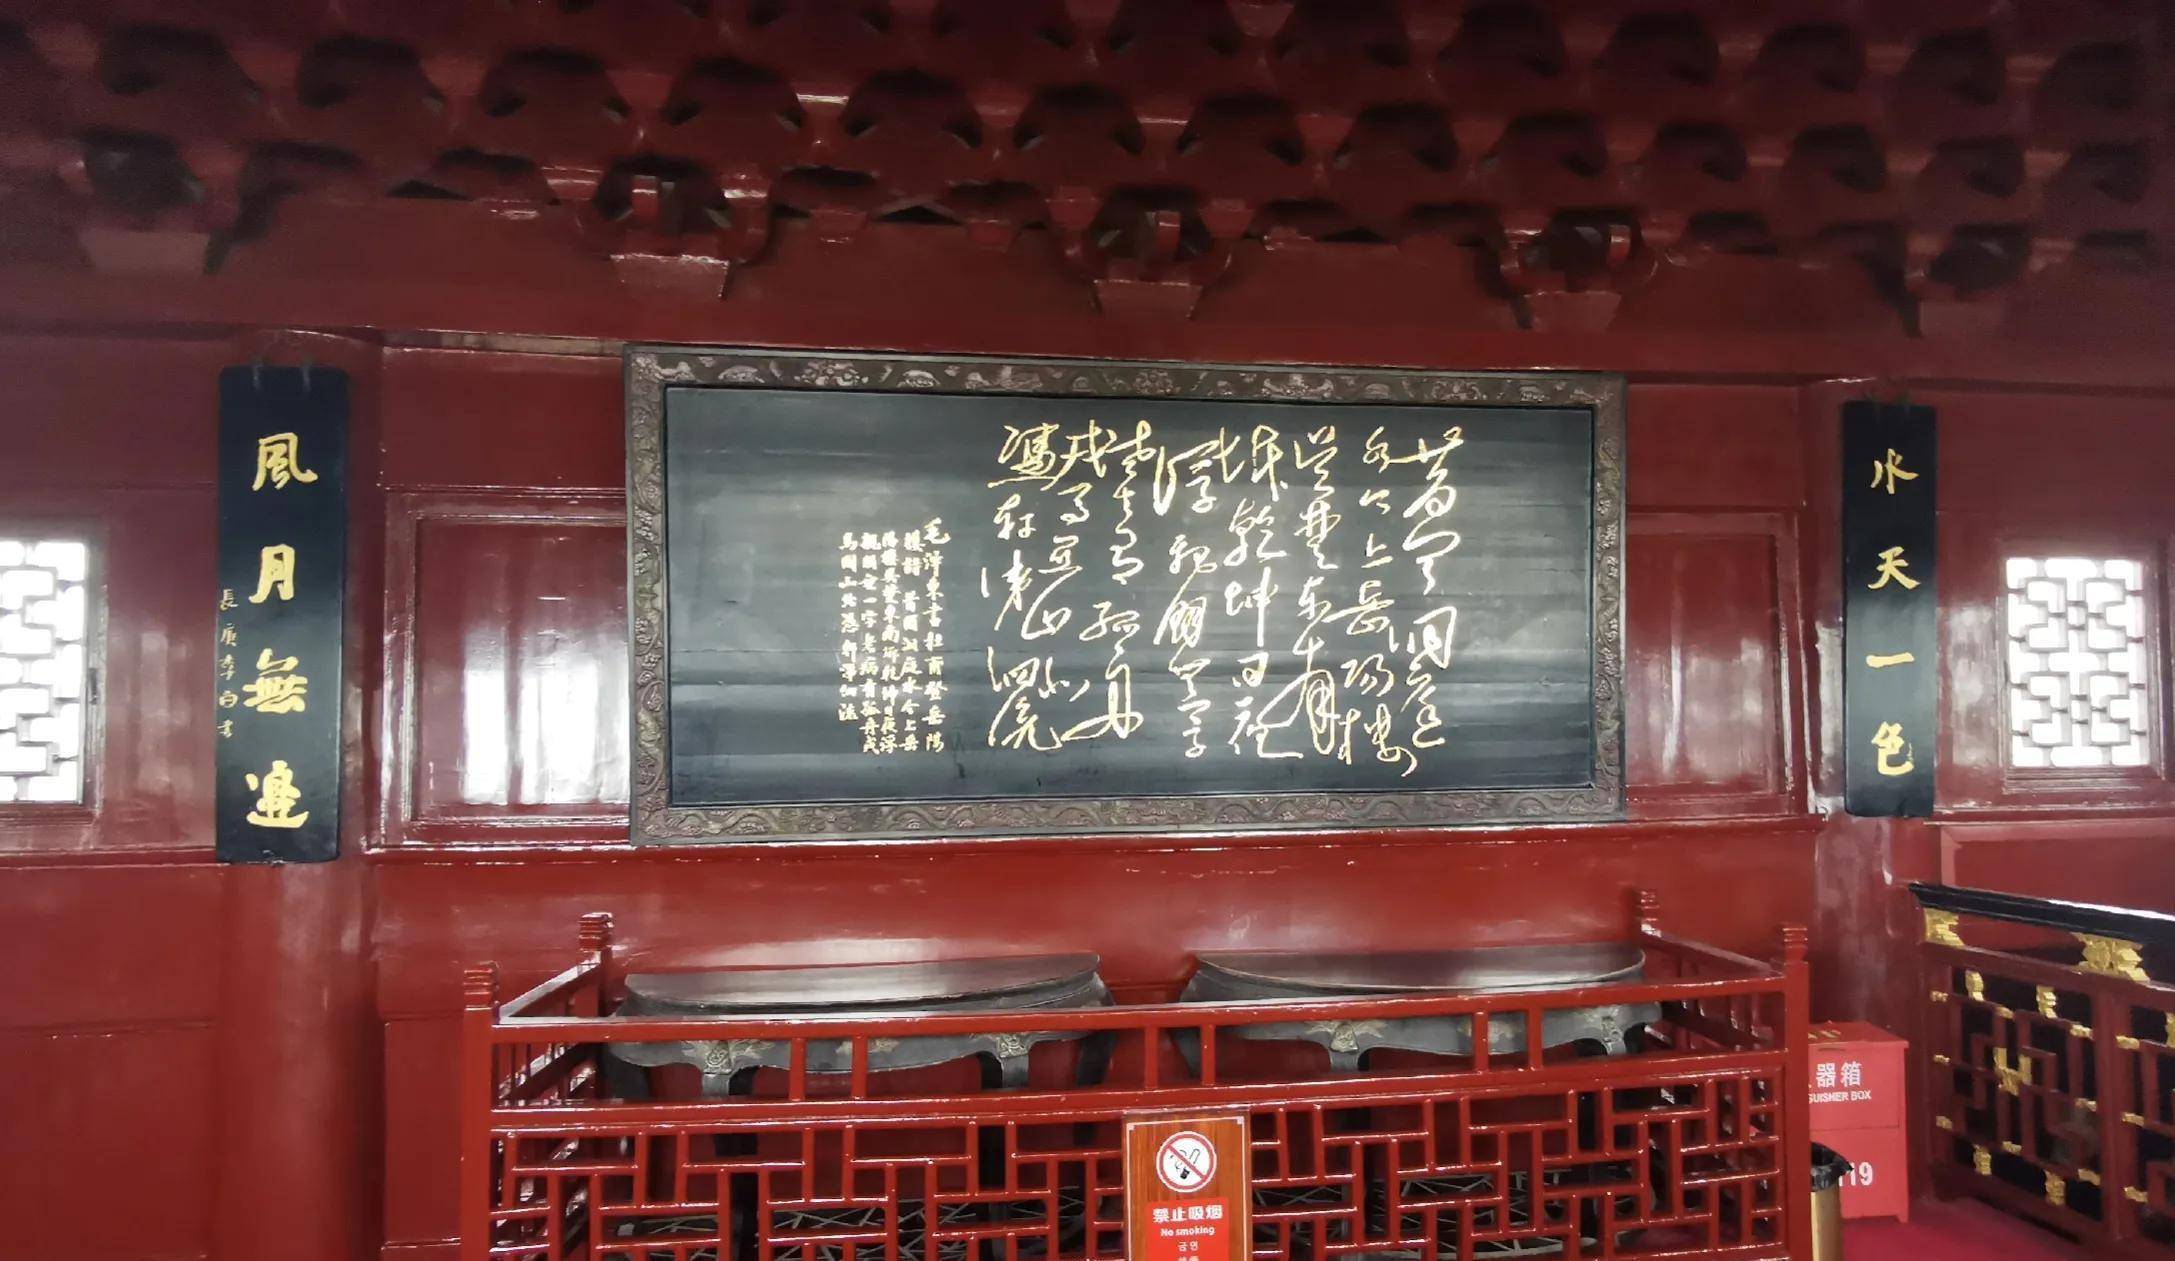 水天一色
昔闻洞庭
水今上岳阳楼
吴楚东南
坼乾坤日夜
浮親朋無一字
老去有孤舟
戎馬关山北
憑軒涕泗流
毛澤東書杜甫登岳陽
樓詩 昔聞洞庭水今上岳
陽樓吳楚東南坼乾坤日夜浮
親朋無一字老病有孤舟戎
馬關山北憑軒涕泗流
風月無邊
長庚李白書
器箱
UISHER BOX
119
禁止吸烟
No smoking
금연